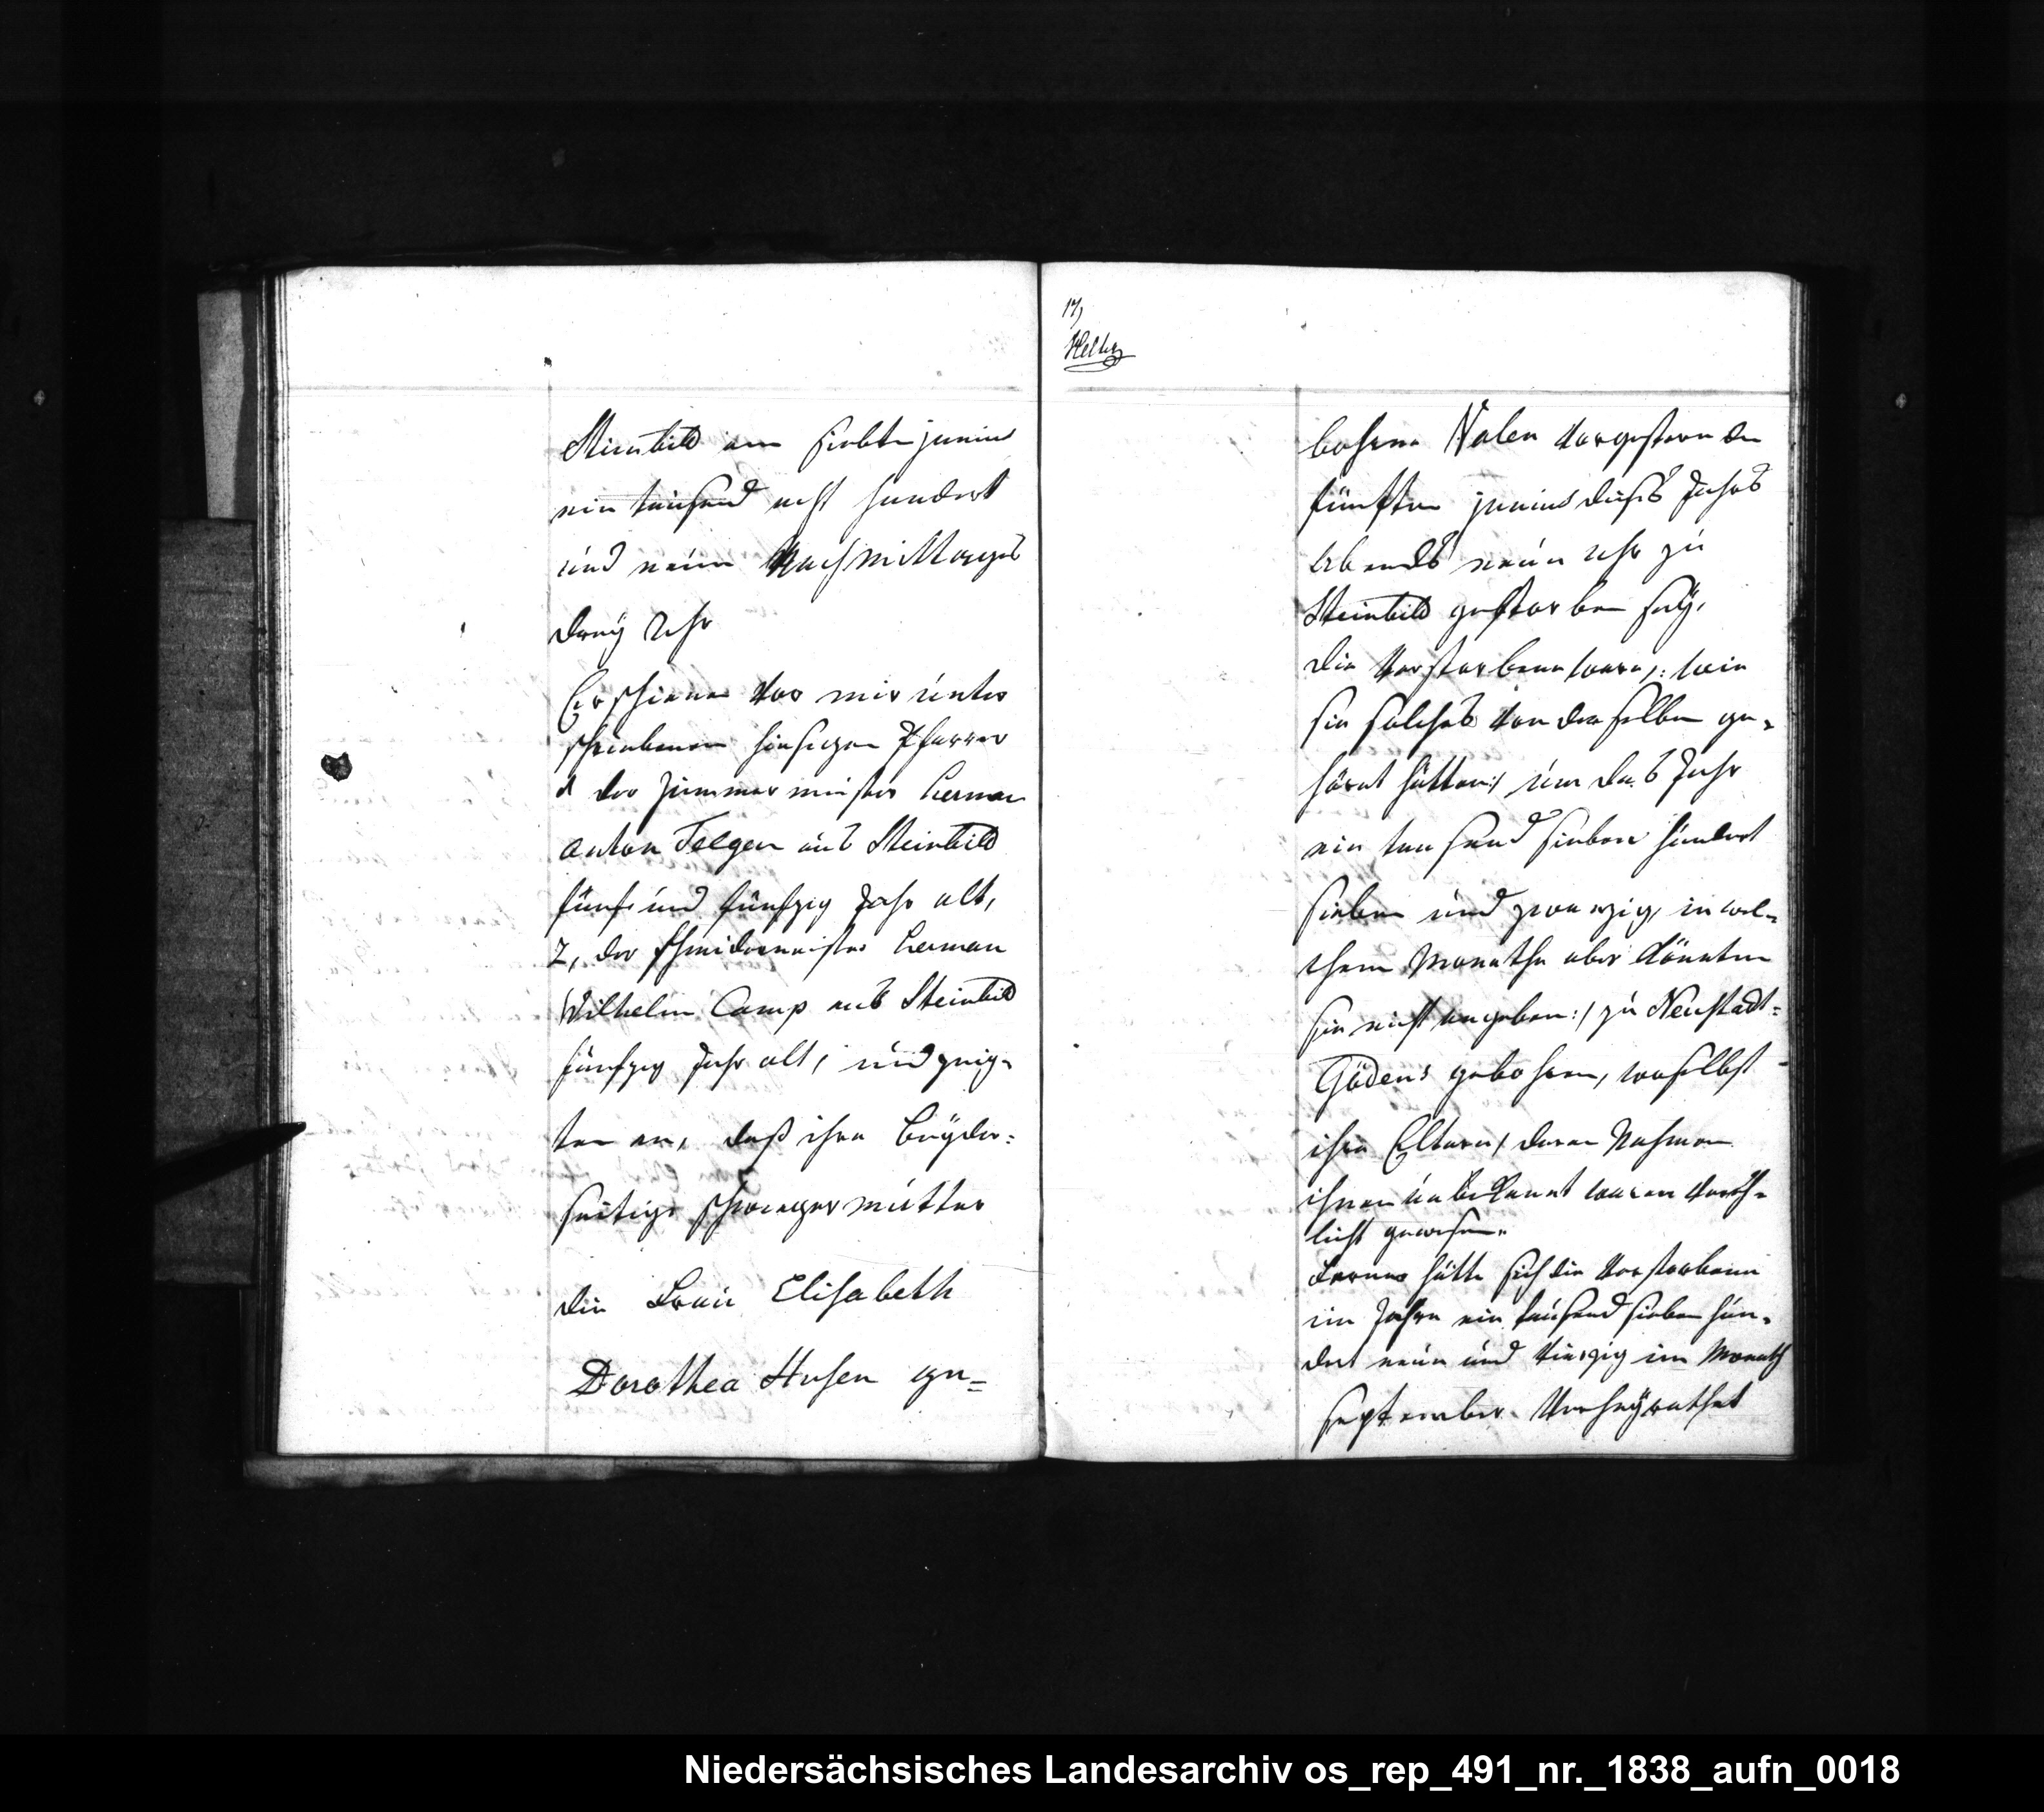 Steinbild am siebten junius
ein tausend acht hundert
und neun Nachmittages
dreÿ Uhr
Erschienen vor mir unter
schriebenen hiesigen Pfarrer
1 der Zimmermeister Herman
Anton Telgen aus Steinbild
fünf und fünfzig Jahr alt,
2, der Schneidermeister Herman
Wilhelm Camp aus Steinbild
fünfzig Jahr alt, und zeig-
ten an, daß ihre beÿder=
seitige schwiegermutter
die Frau Elisabeth
Dorothea Husen ge=
17,
bohrne Nolen vorgestern den
fünften junius dieses Jahrs
Abends neun Uhr zu
Steinbild gestorben seÿ,
die Verstorbene ware /: wie
sie solches von derselben ge-
höret hätten :/ um das Jahr
ein tausend sieben hundert
sieben und zwanzig, in wel=
chem Monathe aber könnten
sie nicht angeben :/ zu Neustadt=
Gödens gebohren, woselbst
ihre Eltern / deren Nahmen
ihnen unbekannt waren
gewesen.
Ferner hätte sich die Verstorbene
im Jahre ein tausend sieben hun-
dert neun und vierzig im Monath
september verheÿrathet
Niedersächsisches Landesarchiv os_rep_491_nr._1838_aufn_0018